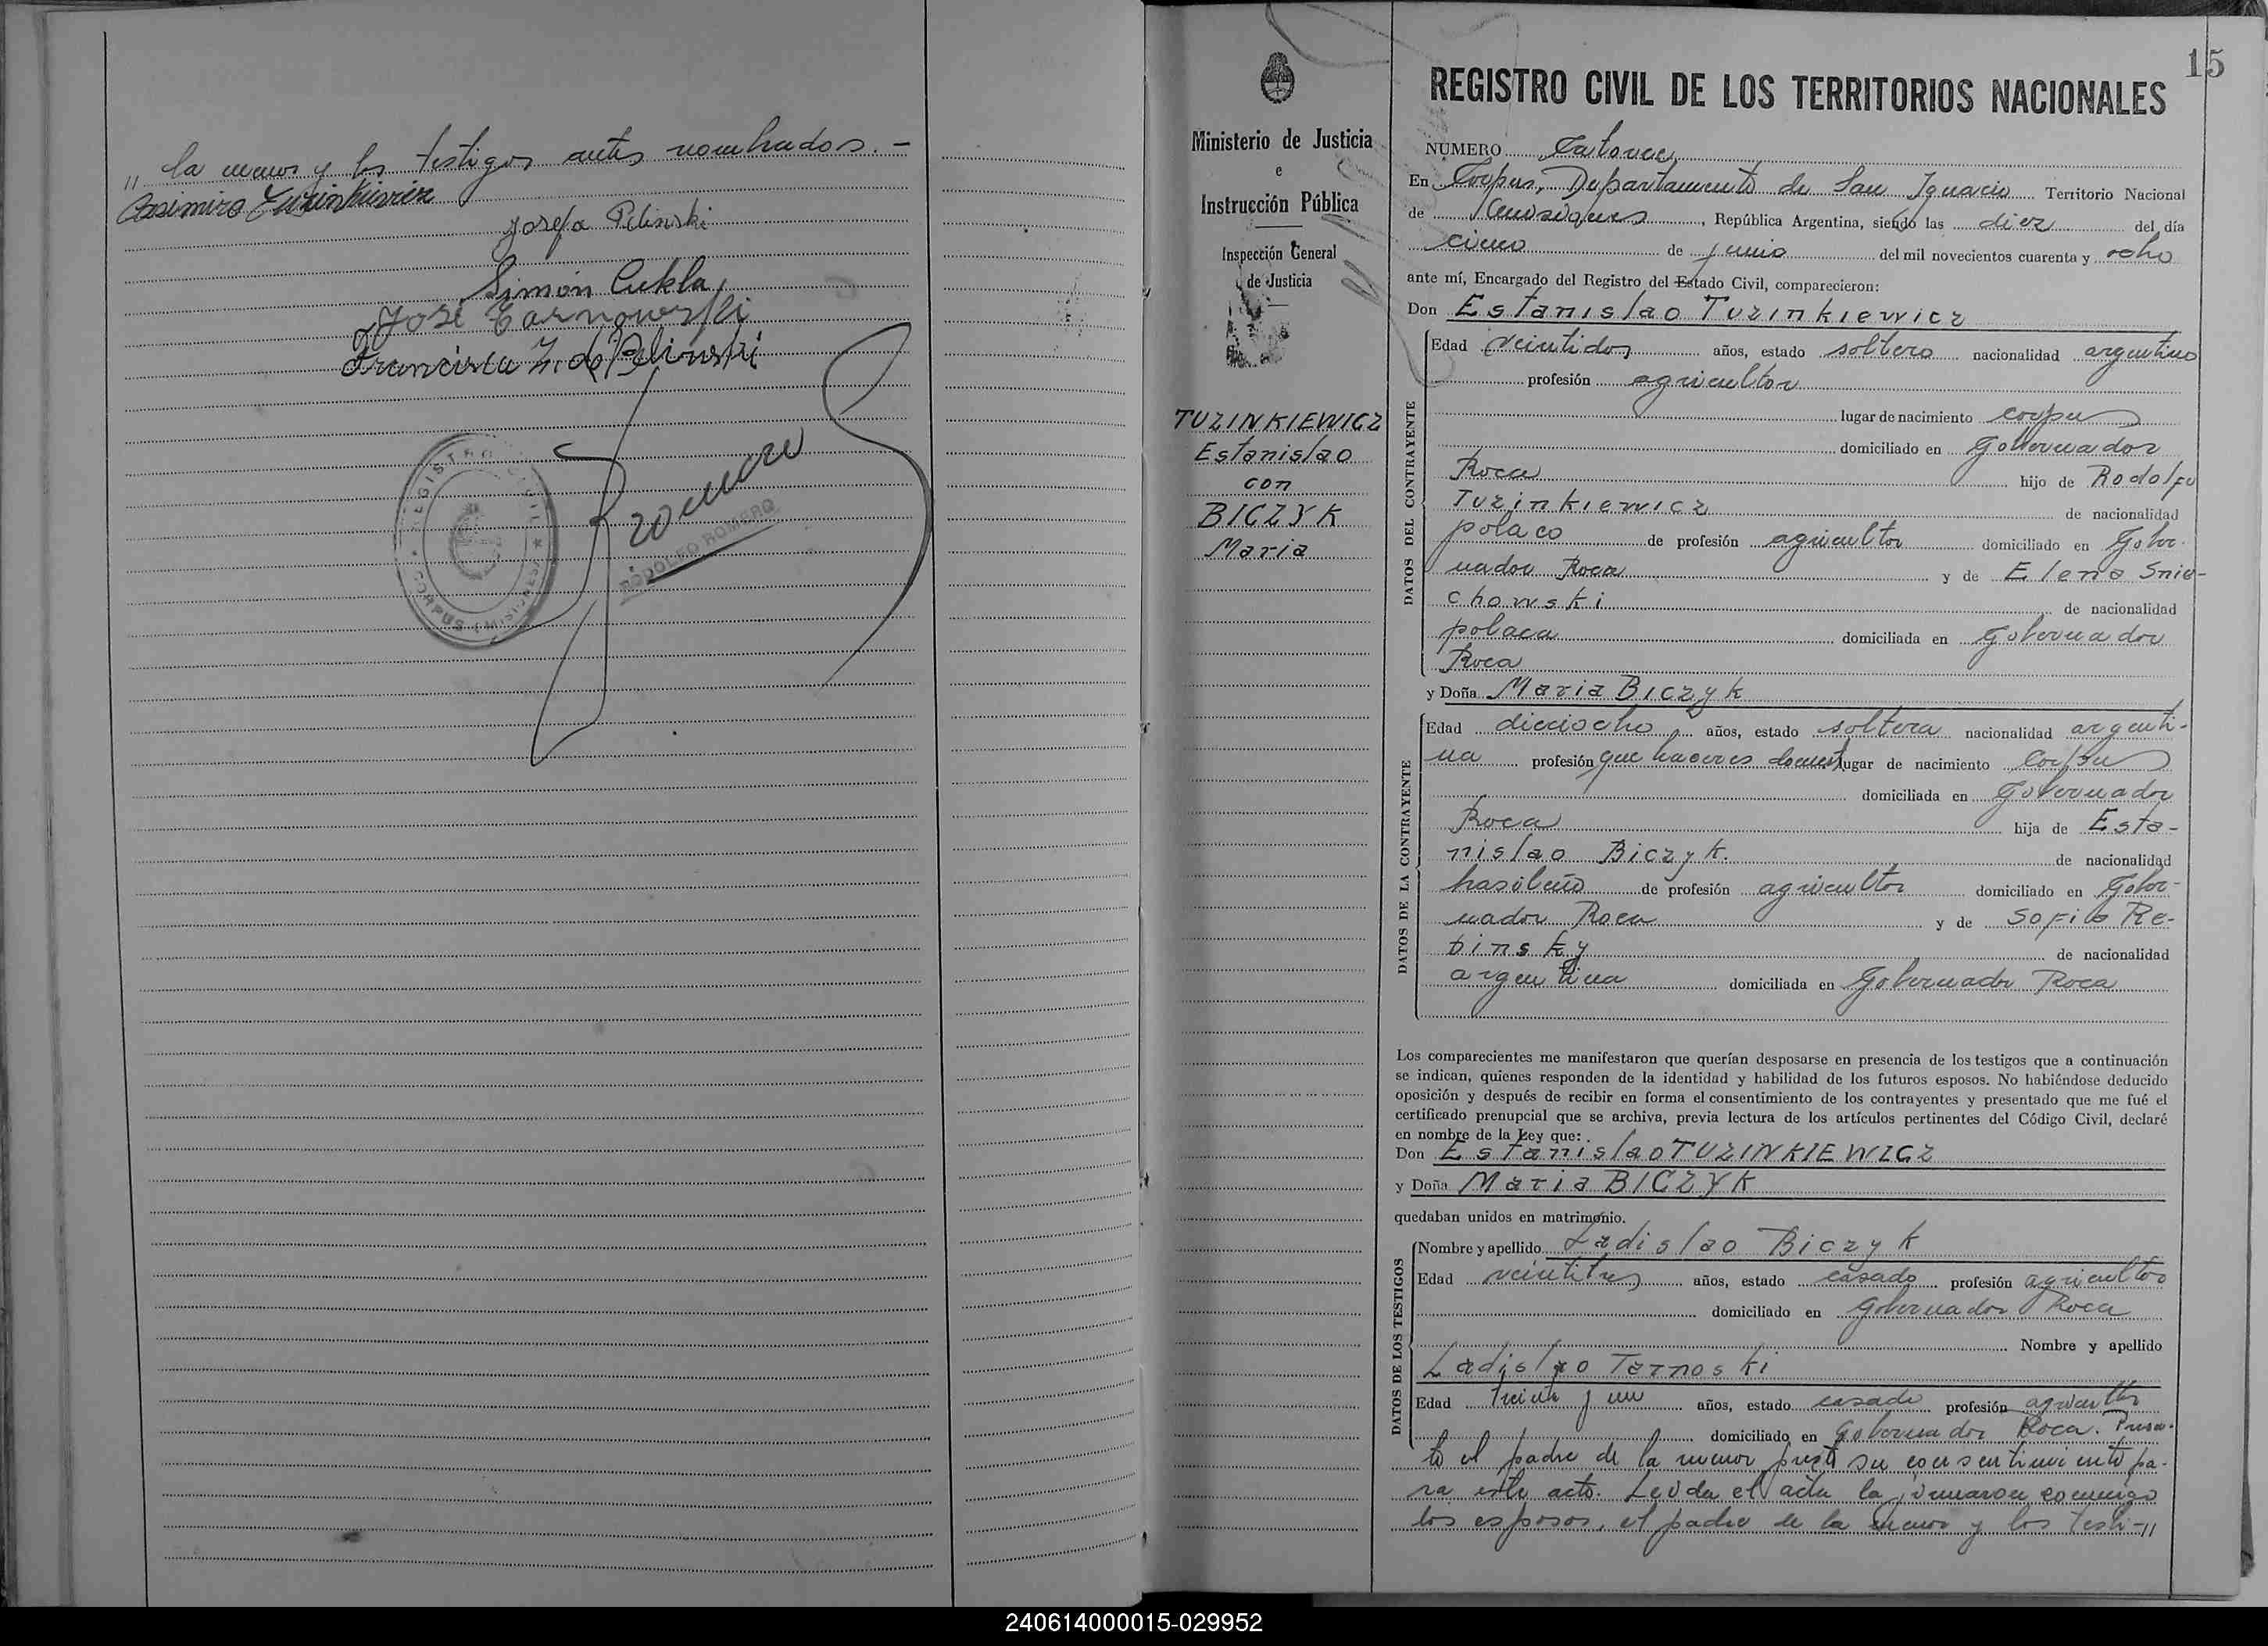 " la menor y los testigos antes nombrados. -
Casimiro Tuzinkievicz
Josefa Pelinski
Simón Cukla
José Tarnowski
Francisca Z. de Pelinski
REGISTRO CIVIL
CORPUS (MISIONES)
Romero
RODOLFO ROMERO
15
Ministerio de Justicia
e
Instrucción Pública
Inspección General
de Justicia
TUZINKIEWICZ
Estanislao
con
BICZYK
Maria
REGISTRO CIVIL DE LOS TERRITORIOS NACIONALES
NÚMERO Catorce
En Corpus, Departamento de San Ignacio Territorio Nacional
de Misiones, República Argentina, siendo las diez del día
cinco de junio del mil novecientos cuarenta y ocho
ante mí, Encargado del Registro del Estado Civil, comparecieron:
Don Estanislao Tuzinkiewicz
DATOS DEL CONTRAYENTE
Edad veintidos años, estado soltero nacionalidad argentino
profesión agricultor
lugar de nacimiento Corpus
domiciliado en Gobernador
Roca hijo de Rodolfo
Tuzinkiewicz de nacionalidad
polaco de profesión agricultor domiciliado en Gober-
nador Roca y de Elena Snie-
chowski de nacionalidad
polaca domiciliada en Gobernador
Roca
y Doña Maria Biczyk
DATOS DE LA CONTRAYENTE
Edad dieciocho años, estado soltera nacionalidad argenti-
na profesión que haceres domest lugar de nacimiento Corpus
domiciliada en Gobernador
Roca hija de Esta-
nislao Biczyk. de nacionalidad
brasileño de profesión agricultor domiciliado en Gober-
nador Roca y de Sofia Re-
binsky de nacionalidad
argentina domiciliada en Gobernador Roca
Los comparecientes me manifestaron que querían desposarse en presencia de los testigos que a continuación
se indican, quienes responden de la identidad y habilidad de los futuros esposos. No habiéndose deducido
oposición y después de recibir en forma el consentimiento de los contrayentes y presentado que me fué el
certificado prenupcial que se archiva, previa lectura de los artículos pertinentes del Código Civil, declaré
en nombre de la Ley que:
Don Estanislao TUZINKIEWICZ
y Doña Maria BICZYK
quedaban unidos en matrimonio.
DATOS DE LOS TESTIGOS
Nombre y apellido Ladislao Biczyk
Edad veintitres años, estado casado profesión agricultor
domiciliado en Gobernador Roca
Nombre y apellido
Ladislao Tarnoski
Edad treinta y un años, estado casado profesión agricultor
domiciliado en Gobernador Roca. Presen-
te el padre de la menor prestó su consentimiento pa-
ra este acto. Leída el acta la firmaron conmigo
los esposos, el padre de la menor y los testi-"
240614000015-029952